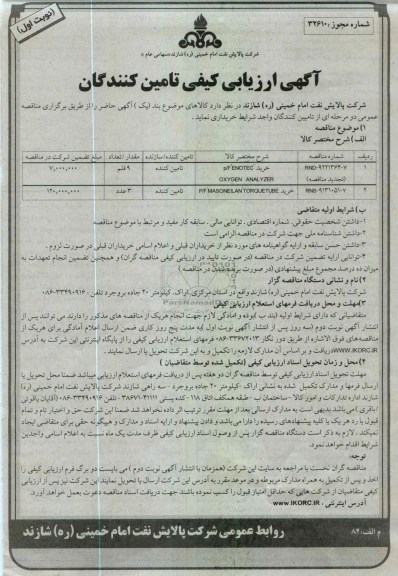 (نوبت اول)
شماره مجوز: ۳۲۶۱۰
شرکت پالایش نفت امام خمینی (ره) شازند (سهامی عام)
آگهی ارزیابی کیفی تامین کنندگان
شرکت پالایش نفت امام خمینی (ره) شازند در نظر دارد کالاهای موضوع بند (یک) آگهی حاضر را از طریق برگزاری مناقصه
عمومی دو مرحله ای از تامیین کنندگان واجد شرایط خریداری نماید.
۱) موضوع مناقصه
الف) شرح مختصر کالا
ردیف شماره مناقصه شرح مختصر کالا تامین کننده/سازنده مقدار/تعداد مبلغ تضمین شرکت در مناقصه
۱ RND-9221364-7 (تجدید مناقصه) خرید P/F ENOTEC OXYGEN ANALYZER تامین کننده ۹ قلم
۲ خرید P/F MASONEILAN TORQUE TUBE تامین کننده ۳ عدد
ب) شرایط اولیه متقاضی
۱-داشتن شخصیت حقوقی، شماره اقتصادی، توانایی مالی، سابقه کار مفید و مرتبط با موضوع مناقصه
۲-داشتن شناسنامه ملی جهت شرکت در مناقصه الزامی است
۳-داشتن حسن سابقه و ارایه گواهینامه های مورد نظر از خریداران قبلی و اعلام اسامی خریداران قبلی در صورت لزوم.
۴-توانایی ارایه تضمین شرکت در مناقصه (در صورت تایید در ارزیابی کیفی مناقصه گران) و همچنین تضمین انجام تعهدات به
میزان ده درصد مجموع مبلغ پیشنهادی (در صورت برنده شدن در مناقصه)
۲) نام و نشانی دستگاه مناقصه گزار
شرکت پالایش نفت امام خمینی (ره) شازند واقع در استان مرکزی، اراک، کیلومتر ۲۰ جاده بروجرد تلفن: ۳۳۴۹۰۹۱۶-۰۸۶
۳) مهلت و محل دریافت فرمهای استعلام ارزیابی کیفی
متقاضیانی که دارای شرایط اولیه (بند ب) بوده و آمادگی لازم جهت انجام هریک از مناقصه های مذکور را دارند می توانند پس از
انتشار آگهی نوبت دوم (سه روز پس از انتشار آگهی نوبت اول) به مدت پنج روز کاری ضمن ارسال اعلام آمادگی برای هریک از
مناقصه های فوق الاشاره از طریق دور نگار ۳۳۶۷۲۰۱۳-۰۸۶ فرمهای استعلام ارزیابی کیفی را از پایگاه اینترنتی این شرکت به آدرس
WWW.IKORC.IR دریافت و بر اساس آن مدارک لازمه را تکمیل و به این شرکت تحویل یا ارسال نمایند.
۴) محل و زمان تحویل اسناد ارزیابی کیفی (تکمیل شده توسط متقاضیان)
مهلت تحویل اسناد ارزیابی کیفی توسط مناقصه گران دو هفته پس از دریافت فرمهای استعلام ارزیابی میباشد ضمنا محل تحویل یا
ارسال فرمها و مدارک تکمیل شده به نشانی اراک-کیلومتر ۲۰ جاده بروجرد - سه راهی شازند شرکت پالایش نفت امام خمینی (ره)
شازند اداره تدارکات و امور کالا - ساختمان ب - طبقه همکف اتاق ۱۱۸ - کده پستی ۴۱۱۱۱-۳۸۶۷۱ - تلفن: ۳۳۴۹۰۹۱۶-۰۸۶ (آقایان باقوتی
/باقری) می باشد بدیهی است به مدارک ارسالی بعد از مهلت مقرر ترتیب اثر داده نخواهد شد ضمنا این شرکت حق و اختیار تام و تمام
قبول یا رد هر یک یا کلیه پیشنهادهای رسیده را دارا می باشد و فادن پیشنهاد و ارایه اسناد و مدارک و هیچگونه حقی برای متقاضی ایجاد
نمیکند. لازم به ذکر است دستگاه مناقصه گزار پس از وصول اسناد ارزیابی کیفی ظرف مدت یک ماه نسبت به اعلام اسامی واجدین
شرایط اقدام خواهد نمود.
توجه:
مناقصه گران نخست با مراجعه به سایت این شرکت (همزمان با انتشار آگهی نوبت دوم) می بایست دو برگ فرم ارزیابی کیفی را
اخذ و پس از تکمیل به همراه مدارک مربوطه و در موعد مقرر به آدرس این شرکت ارسال یا تحویل نمایند این شرکت نیز پس از ارزیابی
کیفی متقاضیان از شرکت هایی که حداقل امتیاز قبول را کسب نموده باشند جهت دریافت اسناد مناقصه دعوت بعمل خواهد آورد.
آدرس اینترنتی: WWW.IKORC.IR
م الف: ۸۴
روابط عمومی شرکت پالایش نفت امام خمینی (ره) شازند